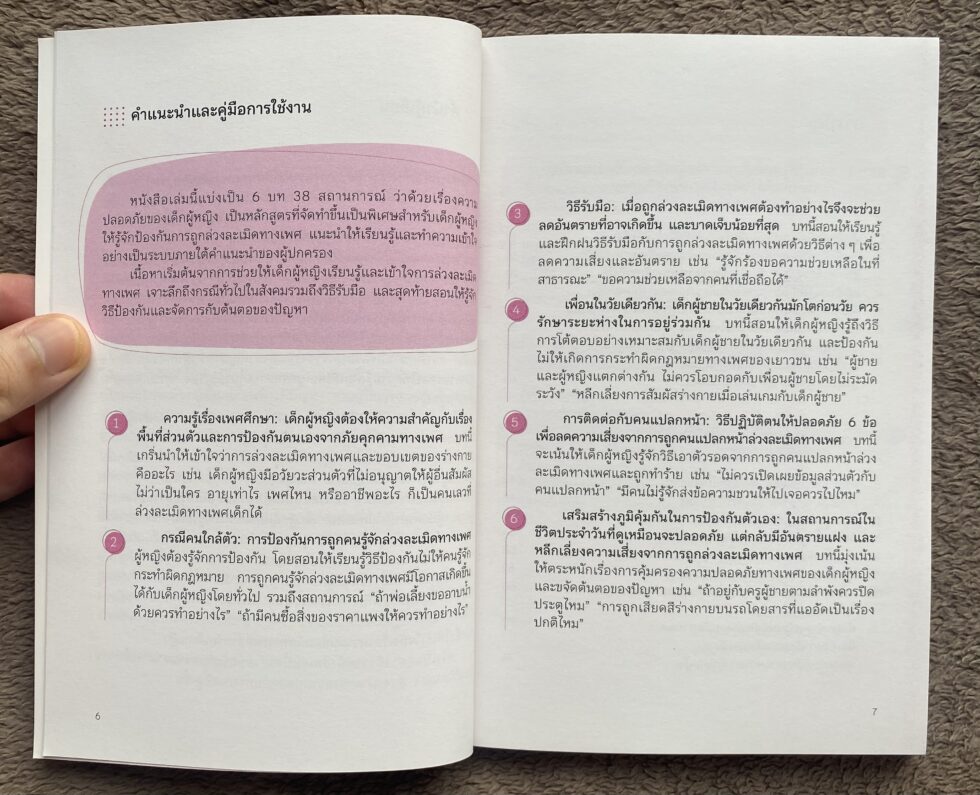 คำแนะนำและคู่มือการใช้งาน
หนังสือเล่มนี้แบ่งเป็น 6 บท 38 สถานการณ์ ว่าด้วยเรื่องความ
ปลอดภัยของเด็กผู้หญิง เป็นหลักสูตรที่จัดทำขึ้นเป็นพิเศษสำหรับเด็กผู้หญิง
ให้รู้จักป้องกันการถูกล่วงละเมิดทางเพศ แนะนำให้เรียนรู้และทำความเข้าใจ
อย่างเป็นระบบภายใต้คำแนะนำของผู้ปกครอง
เนื้อหาเริ่มต้นจากการช่วยให้เด็กผู้หญิงเรียนรู้และเข้าใจการล่วงละเมิด
ทางเพศ เจาะลึกถึงกรณีทั่วไปในสังคมรวมถึงวิธีรับมือ และสุดท้ายสอนให้รู้จัก
วิธีป้องกันและจัดการกับต้นตอของปัญหา
1 ความรู้เรื่องเพศศึกษา: เด็กผู้หญิงต้องให้ความสำคัญกับเรื่อง
พื้นที่ส่วนตัวและการป้องกันตนเองจากภัยคุกคามทางเพศ บทนี้
เกริ่นนำให้เข้าใจว่าการล่วงละเมิดทางเพศและขอบเขตของร่างกาย
คืออะไร เช่น เด็กผู้หญิงมีอวัยวะส่วนตัวที่ไม่อนุญาตให้ผู้อื่นสัมผัส
ไม่ว่าเป็นใคร อายุเท่าไร เพศไหน หรืออาชีพอะไร ก็เป็นคนเลวที่
ล่วงละเมิดทางเพศเด็กได้
2 กรณีคนใกล้ตัว: การป้องกันการถูกคนรู้จักล่วงละเมิดทางเพศ
ผู้หญิงต้องรู้จักการป้องกัน โดยสอนให้เรียนรู้วิธีป้องกันไม่ให้คนรู้จัก
กระทำผิดกฎหมาย การถูกคนรู้จักล่วงละเมิดทางเพศมีโอกาสเกิดขึ้น
ได้กับเด็กผู้หญิงโดยทั่วไป รวมถึงสถานการณ์ “ถ้าพ่อเลี้ยงขออาบน้ำ
ด้วยควรทำอย่างไร” “ถ้ามีคนซื้อสิ่งของราคาแพงให้ควรทำอย่างไร”
6
3 วิธีรับมือ: เมื่อถูกล่วงละเมิดทางเพศต้องทำอย่างไรจึงจะช่วย
ลดอันตรายที่อาจเกิดขึ้น และบาดเจ็บน้อยที่สุด บทนี้สอนให้เรียนรู้
และฝึกฝนวิธีรับมือกับการถูกล่วงละเมิดทางเพศด้วยวิธีต่าง ๆ เพื่อ
ลดความเสี่ยงและอันตราย เช่น “รู้จักร้องขอความช่วยเหลือในที่
สาธารณะ” “ขอความช่วยเหลือจากคนที่เชื่อถือได้”
4 เพื่อนในวัยเดียวกัน: เด็กผู้ชายในวัยเดียวกันมักโตก่อนวัย ควร
รักษาระยะห่างในการอยู่ร่วมกัน บทนี้สอนให้เด็กผู้หญิงรู้ถึงวิธี
การโต้ตอบอย่างเหมาะสมกับเด็กผู้ชายในวัยเดียวกัน และป้องกัน
ไม่ให้เกิดการกระทำผิดกฎหมายทางเพศของเยาวชน เช่น “ผู้ชาย
และผู้หญิงแตกต่างกัน ไม่ควรโอบกอดกับเพื่อนผู้ชายโดยไม่ระมัด
ระวัง” “หลีกเลี่ยงการสัมผัสร่างกายเมื่อเล่นเกมกับเด็กผู้ชาย”
5 การติดต่อกับคนแปลกหน้า: วิธีปฏิบัติตนให้ปลอดภัย 6 ข้อ
เพื่อลดความเสี่ยงจากการถูกคนแปลกหน้าล่วงละเมิดทางเพศ บทนี้
จะเน้นให้เด็กผู้หญิงรู้จักวิธีเอาตัวรอดจากการถูกคนแปลกหน้าล่วง
ละเมิดทางเพศและถูกทำร้าย เช่น “ไม่ควรเปิดเผยข้อมูลส่วนตัวกับ
คนแปลกหน้า” “มีคนไม่รู้จักส่งข้อความชวนให้ไปเจอควรไปไหม”
6 เสริมสร้างภูมิคุ้มกันในการป้องกันตัวเอง: ในสถานการณ์ใน
ชีวิตประจำวันที่ดูเหมือนจะปลอดภัย แต่กลับมีอันตรายแฝง และ
หลีกเลี่ยงความเสี่ยงจากการถูกล่วงละเมิดทางเพศ บทนี้มุ่งเน้น
ให้ตระหนักเรื่องการคุ้มครองความปลอดภัยทางเพศของเด็กผู้หญิง
และขจัดต้นตอของปัญหา เช่น “ถ้าอยู่กับครูผู้ชายตามลำพังควรปิด
ประตูไหม” “การถูกเสียดสีร่างกายบนรถโดยสารที่แออัดเป็นเรื่อง
ปกติไหม”
7